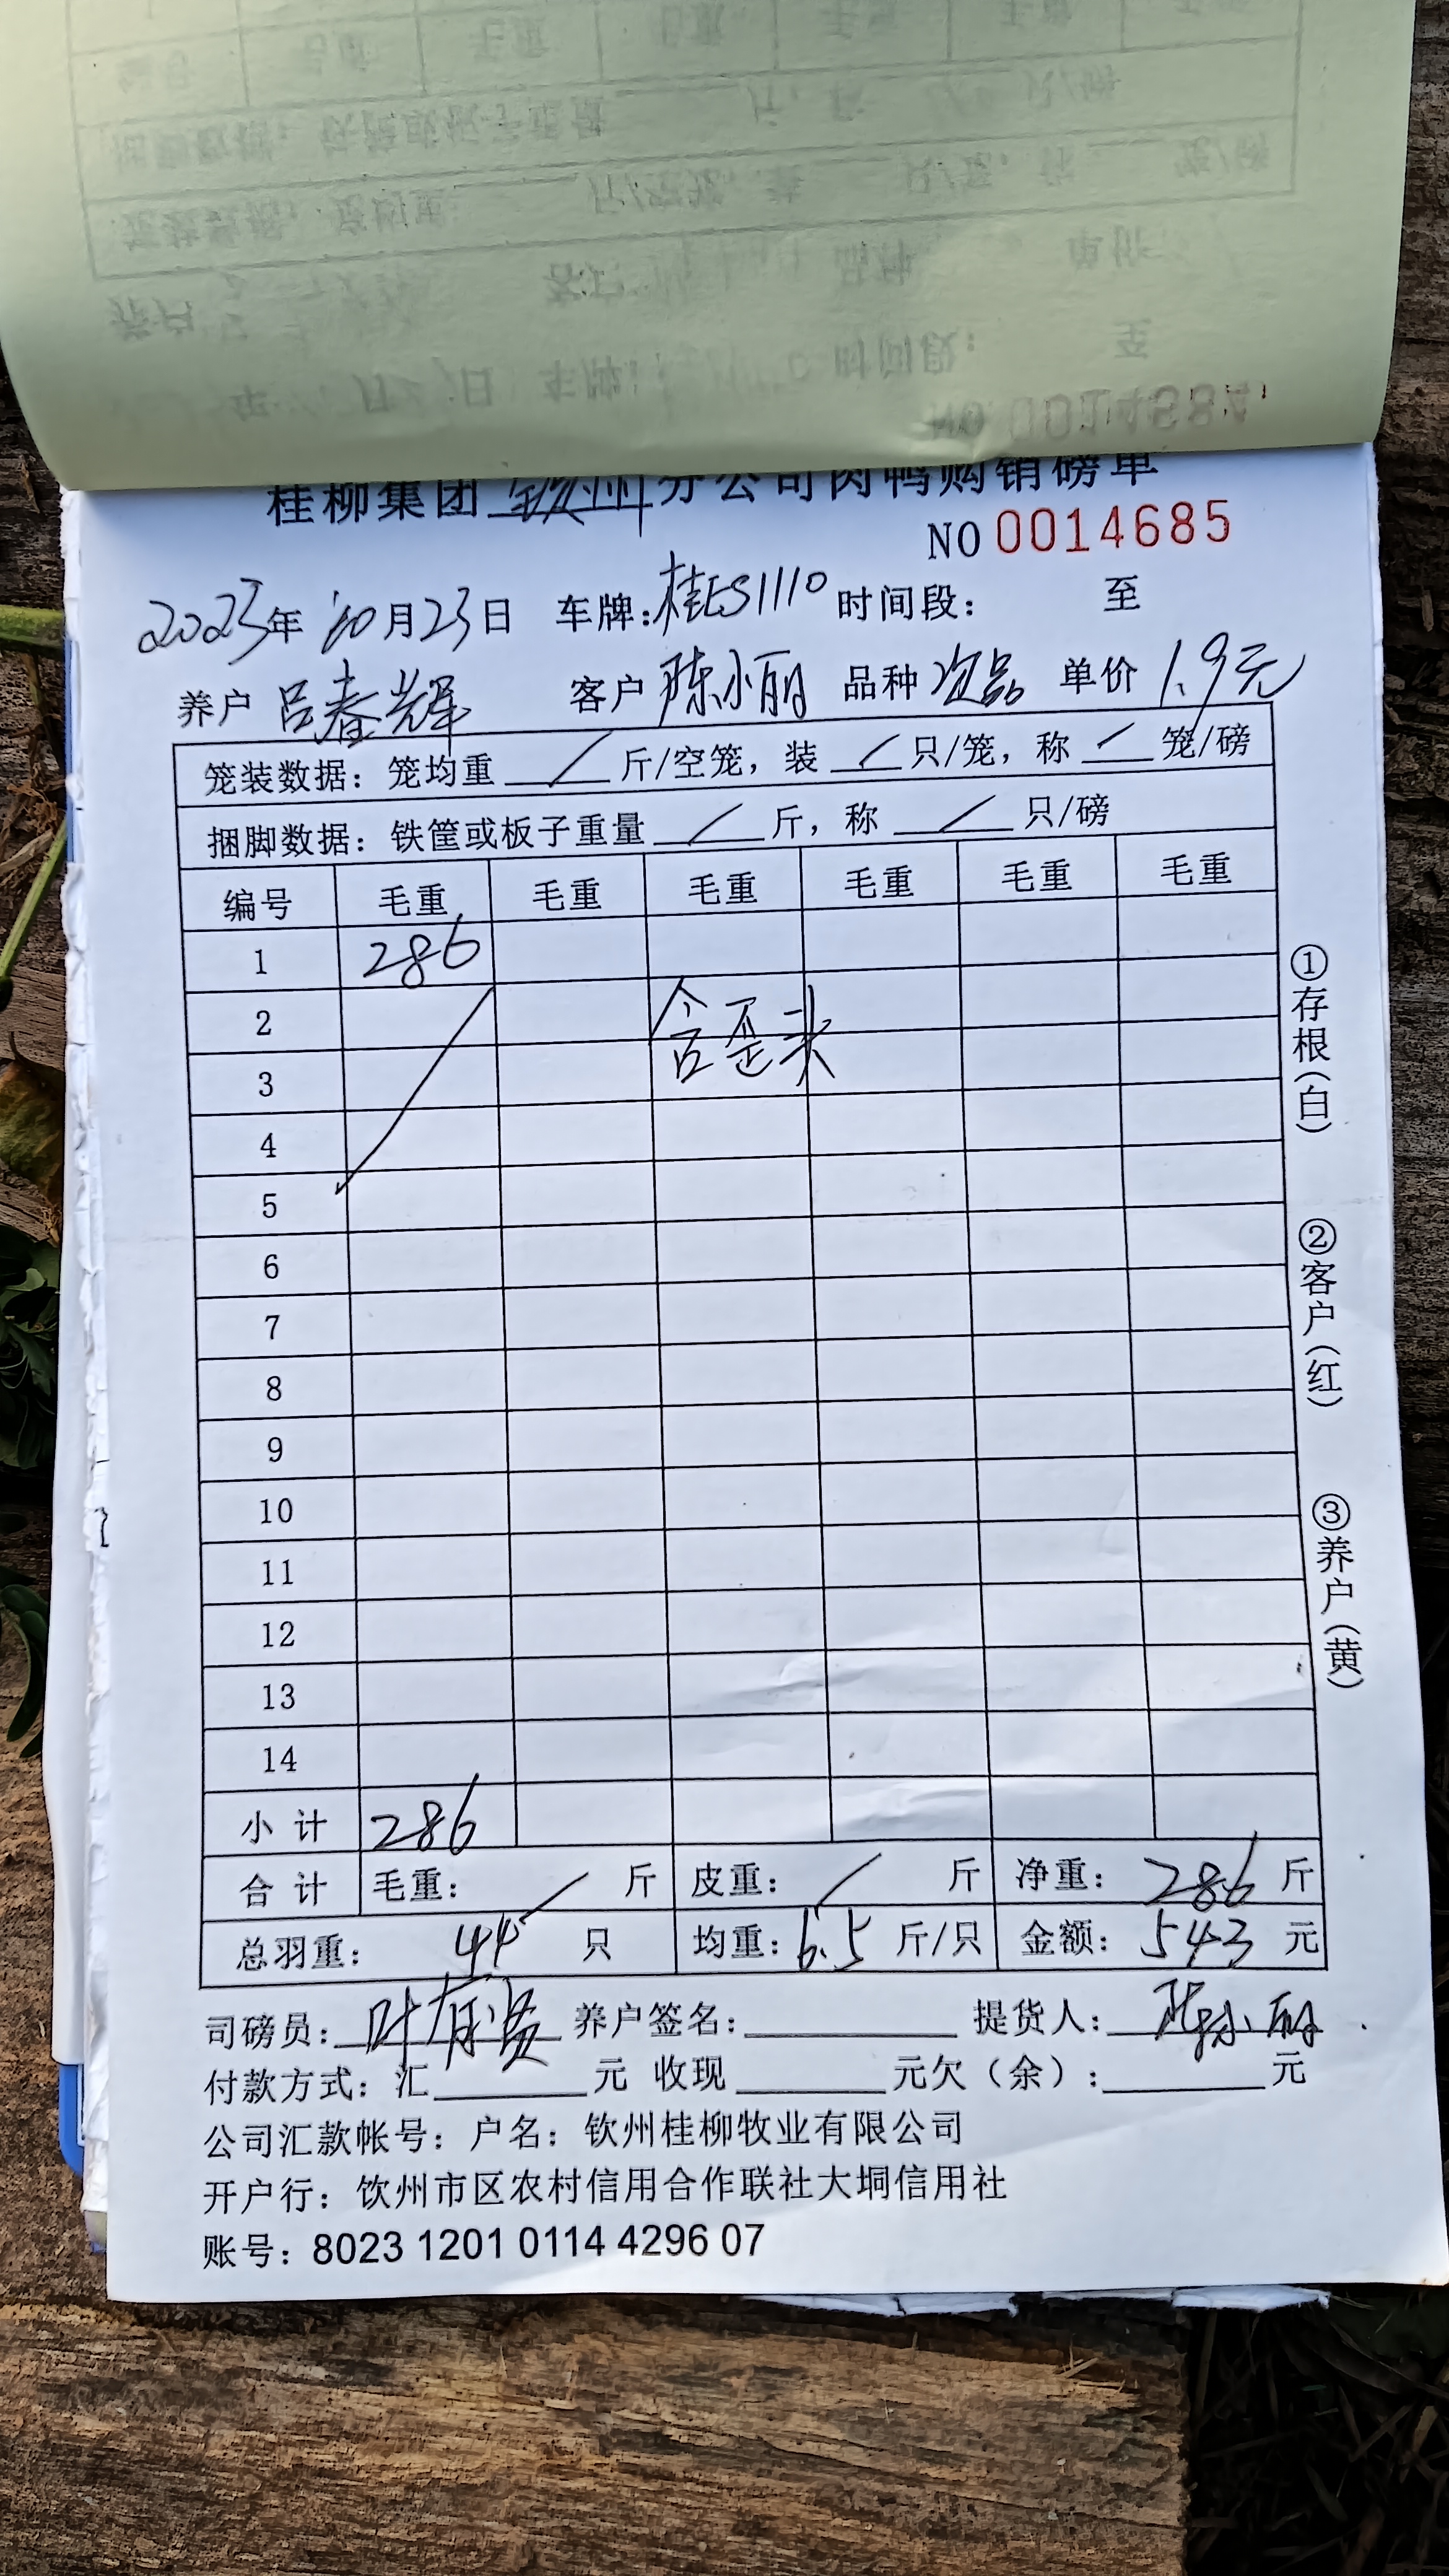 桂柳集团 钦州 分公司肉鸭购销磅单
NO 0014685
2023年 10月23日 车牌:桂ES1110 时间段: 至
养户 吕春辉 客户 陈小丽 品种 次品 单价 1.9元
笼装数据: 笼均重 / 斤/空笼, 装 / 只/笼, 称 / 笼/磅
捆脚数据: 铁筐或板子重量 / 斤, 称 / 只/磅
编号 毛重 毛重 毛重 毛重 毛重 毛重
1 286
2
含歪头
3
4
5
6
7
8
9
10
11
12
13
14
小计 286
合计 毛重: / 斤 皮重: / 斤 净重: 286 斤
总羽重: 44 只 均重: 6.5 斤/只 金额: 543 元
司磅员: 叶 养户签名: 提货人: 陈小丽
付款方式: 汇 元 收现 元欠(余): 元
公司汇款帐号: 户名: 钦州桂柳牧业有限公司
开户行: 钦州市区农村信用合作联社大垌信用社
账号: 8023 1201 0114 4296 07
①存根(白)
②客户(红)
③养户(黄)